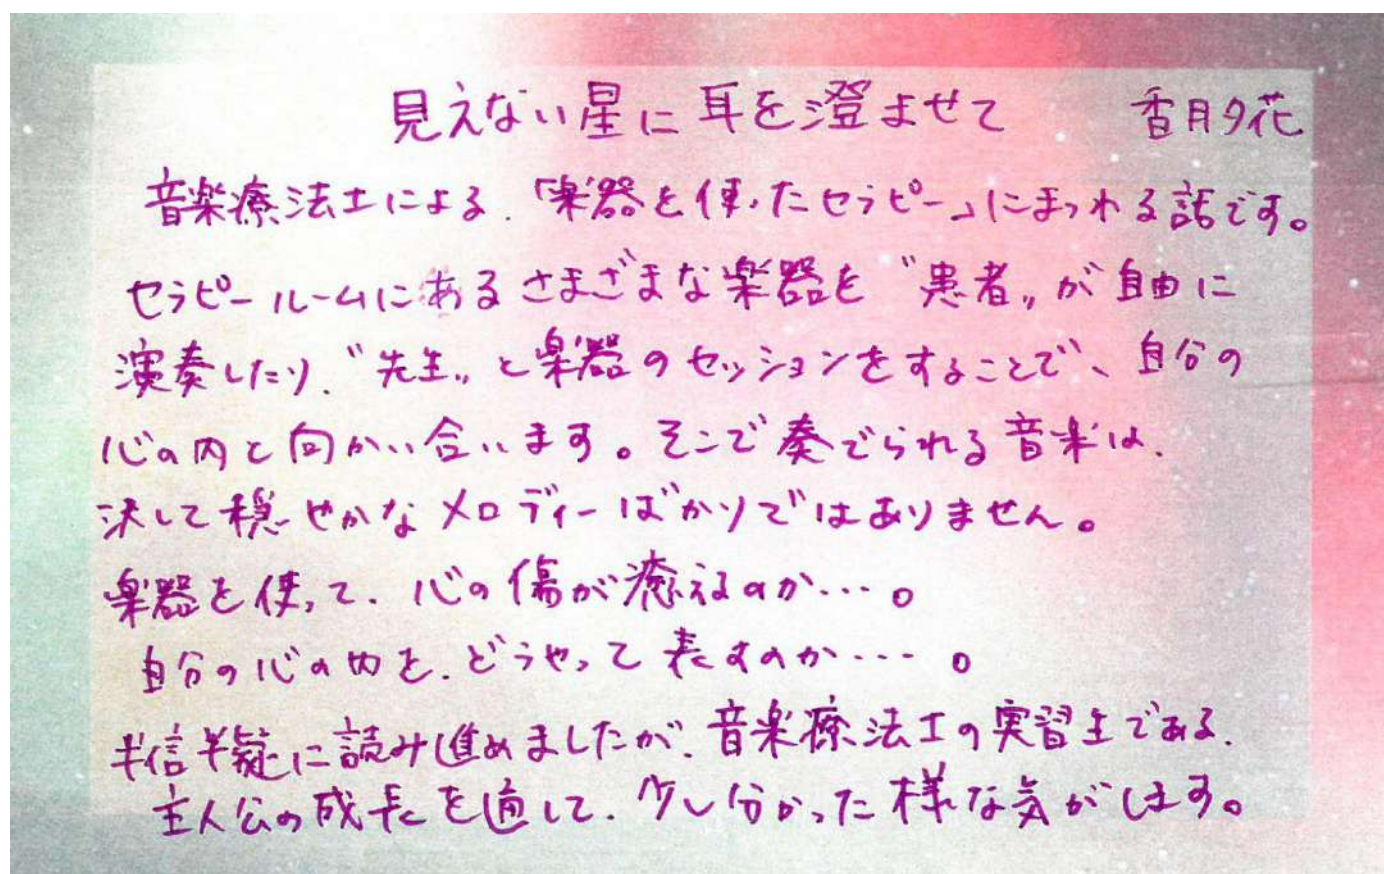 見えない星に耳を澄ませて　香月夕花
音楽療法士による、「楽器を使ったセラピー」にまつわる話です。
セラピールームにあるさまざまな楽器を〝患者〟が自由に
演奏したり、〝先生〟と楽器のセッションをすることで、自分の
心の内と向かい合います。そこで奏でられる音楽は、
決して穏やかなメロディーばかりではありません。
楽器を使って、心の傷が癒えるのか…。
自分の心の内を、どうやって表すのか…。
半信半疑に読み進めましたが、音楽療法士の実習生である、
主人公の成長を通して、少し分かった様な気がします。